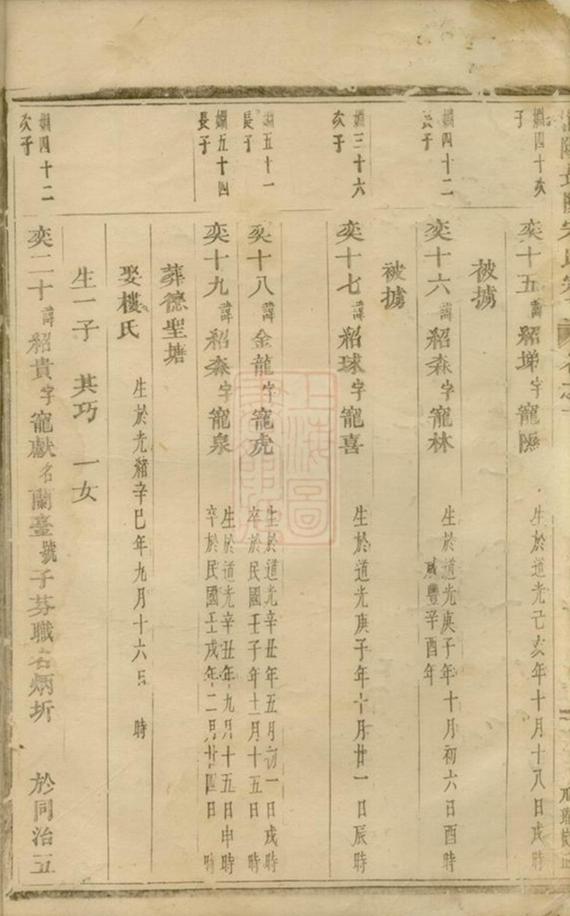 嫻四十次子
奕十五諱紹埽字寵隰 生於道光己亥年十月十八日戌時
被擄
嫻四十二長子
奕十六諱紹森字寵林 生於道光庚子年十月初六日酉時
咸豐辛酉年
被擄
嫻三十六次子
奕十七諱紹球字寵喜 生於道光庚子年十月廿一日辰時
嫻五十一長子
奕十八諱金龍字寵虎 生於道光辛丑年五月初一日戌時
卒於民國壬子年十一月十五日 時
嫻五十四長子
奕十九諱紹森字寵泉 生於道光辛丑年九月十五日申時
卒於民國壬戌年二月廿四日 時
葬德聖塘
娶樓氏 生於光緒辛巳年九月十六日 時
生一子 其巧 一女
嫻四十二次子
奕二十諱紹貴字寵獻名蘭臺號子芬職名炳圻 於同治五